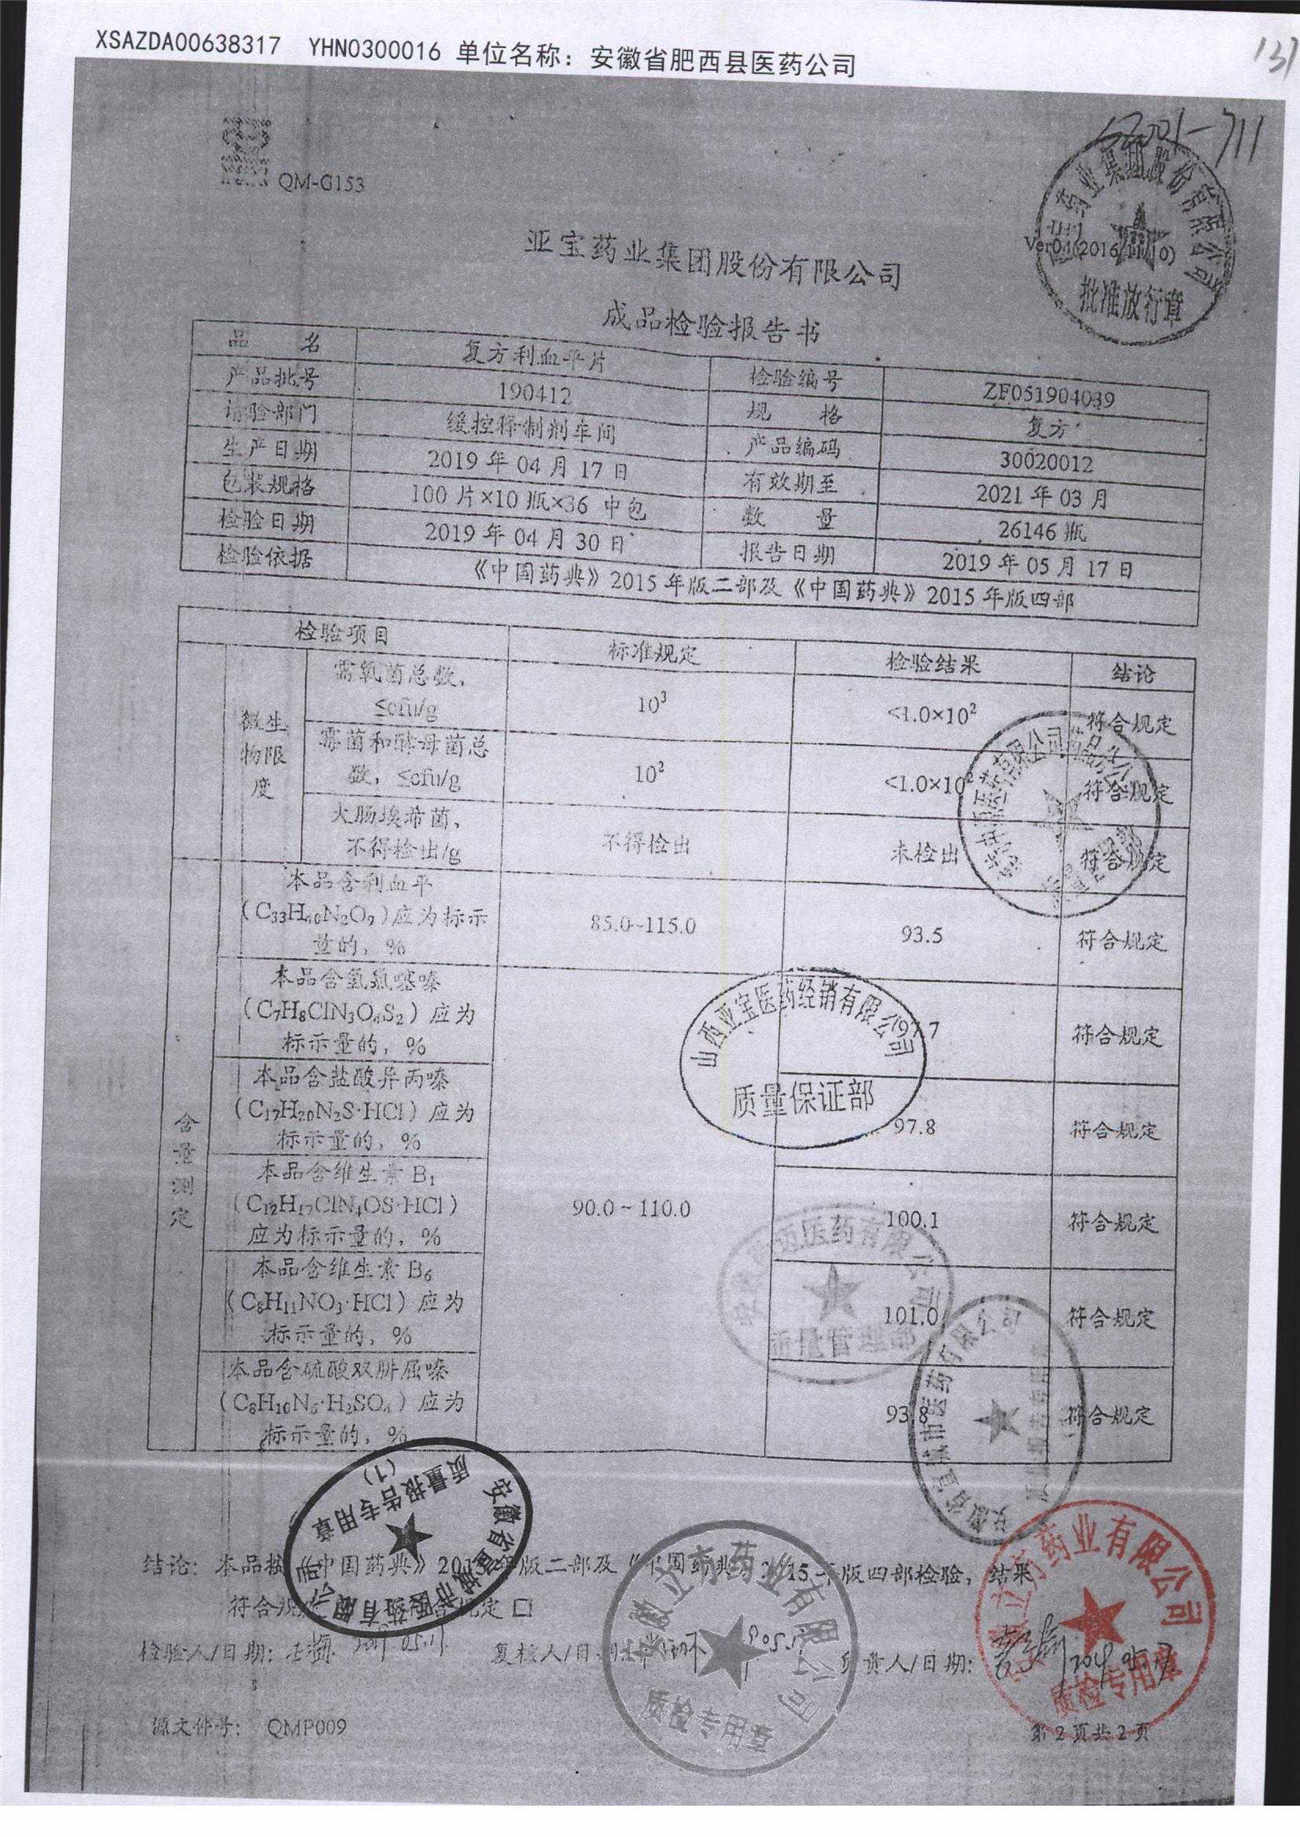 XSAZDA00638317 YHN0300016 单位名称：安徽省肥西县医药公司
137
QM-G153
亚宝药业集团股份有限公司
批准放行章
亚宝药业集团股份有限公司
成品检验报告书
品 名 复方利血平片 检验编号 ZF051904039
产品批号 190412 规 格 复方
请验部门 缓控释制剂车间 产品编码 30020012
生产日期 2019年04月17日 有效期至 2021年03月
包装规格 100片×10瓶×36 中包 数 量 26146瓶
检验日期 2019年04月30日 报告日期 2019年05月17日
检验依据 《中国药典》2015年版二部及《中国药典》2015年版四部
检验项目 标准规定 检验结果 结论
微生物限度
需氧菌总数，
≤cfu/g 10³ <1.0×10² 符合规定
霉菌和酵母菌总
数，≤cfu/g 10² <1.0×10² 符合规定
大肠埃希菌，
不得检出/g 不得检出 未检出 符合规定
含量测定
本品含利血平
(C₃₃H₄₀N₂O₉)应为标示
量的，% 85.0~115.0 93.5 符合规定
本品含氢氯噻嗪
(C₇H₈ClN₃O₄S₂)应为
标示量的，% 符合规定
本品含盐酸异丙嗪
(C₁₇H₂₀N₂S·HCl)应为
标示量的，% 97.8 符合规定
本品含维生素B₁
(C₁₂H₁₇ClN₄OS·HCl)
应为标示量的，% 90.0~110.0 100.1 符合规定
本品含维生素B₆
(C₈H₁₁NO₃·HCl)应为
标示量的，% 101.0 符合规定
本品含硫酸双肼屈嗪
(C₈H₁₀N₆·H₂SO₄)应为
标示量的，% 93.8 符合规定
山西亚宝医药经销有限公司
质量保证部
质量管理部
安徽省宣城市医药有限公司
安徽省宣城市医药有限公司
质量报告专用章
(1)
结论：本品按《中国药典》2015年版二部及《中国药典》2015年版四部检验，结果
符合规定 规定 □
检验人/日期： 复核人/日期： 负责人/日期：
安徽立方药业有限公司
质检专用章
安徽立方药业有限公司
质检专用章
源文件号： QMP009
第2页共2页